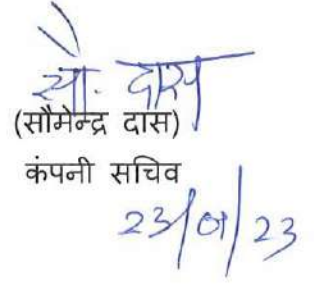 सौ. दास
(सौमेन्द्र दास)
कंपनी सचिव
23/01/23